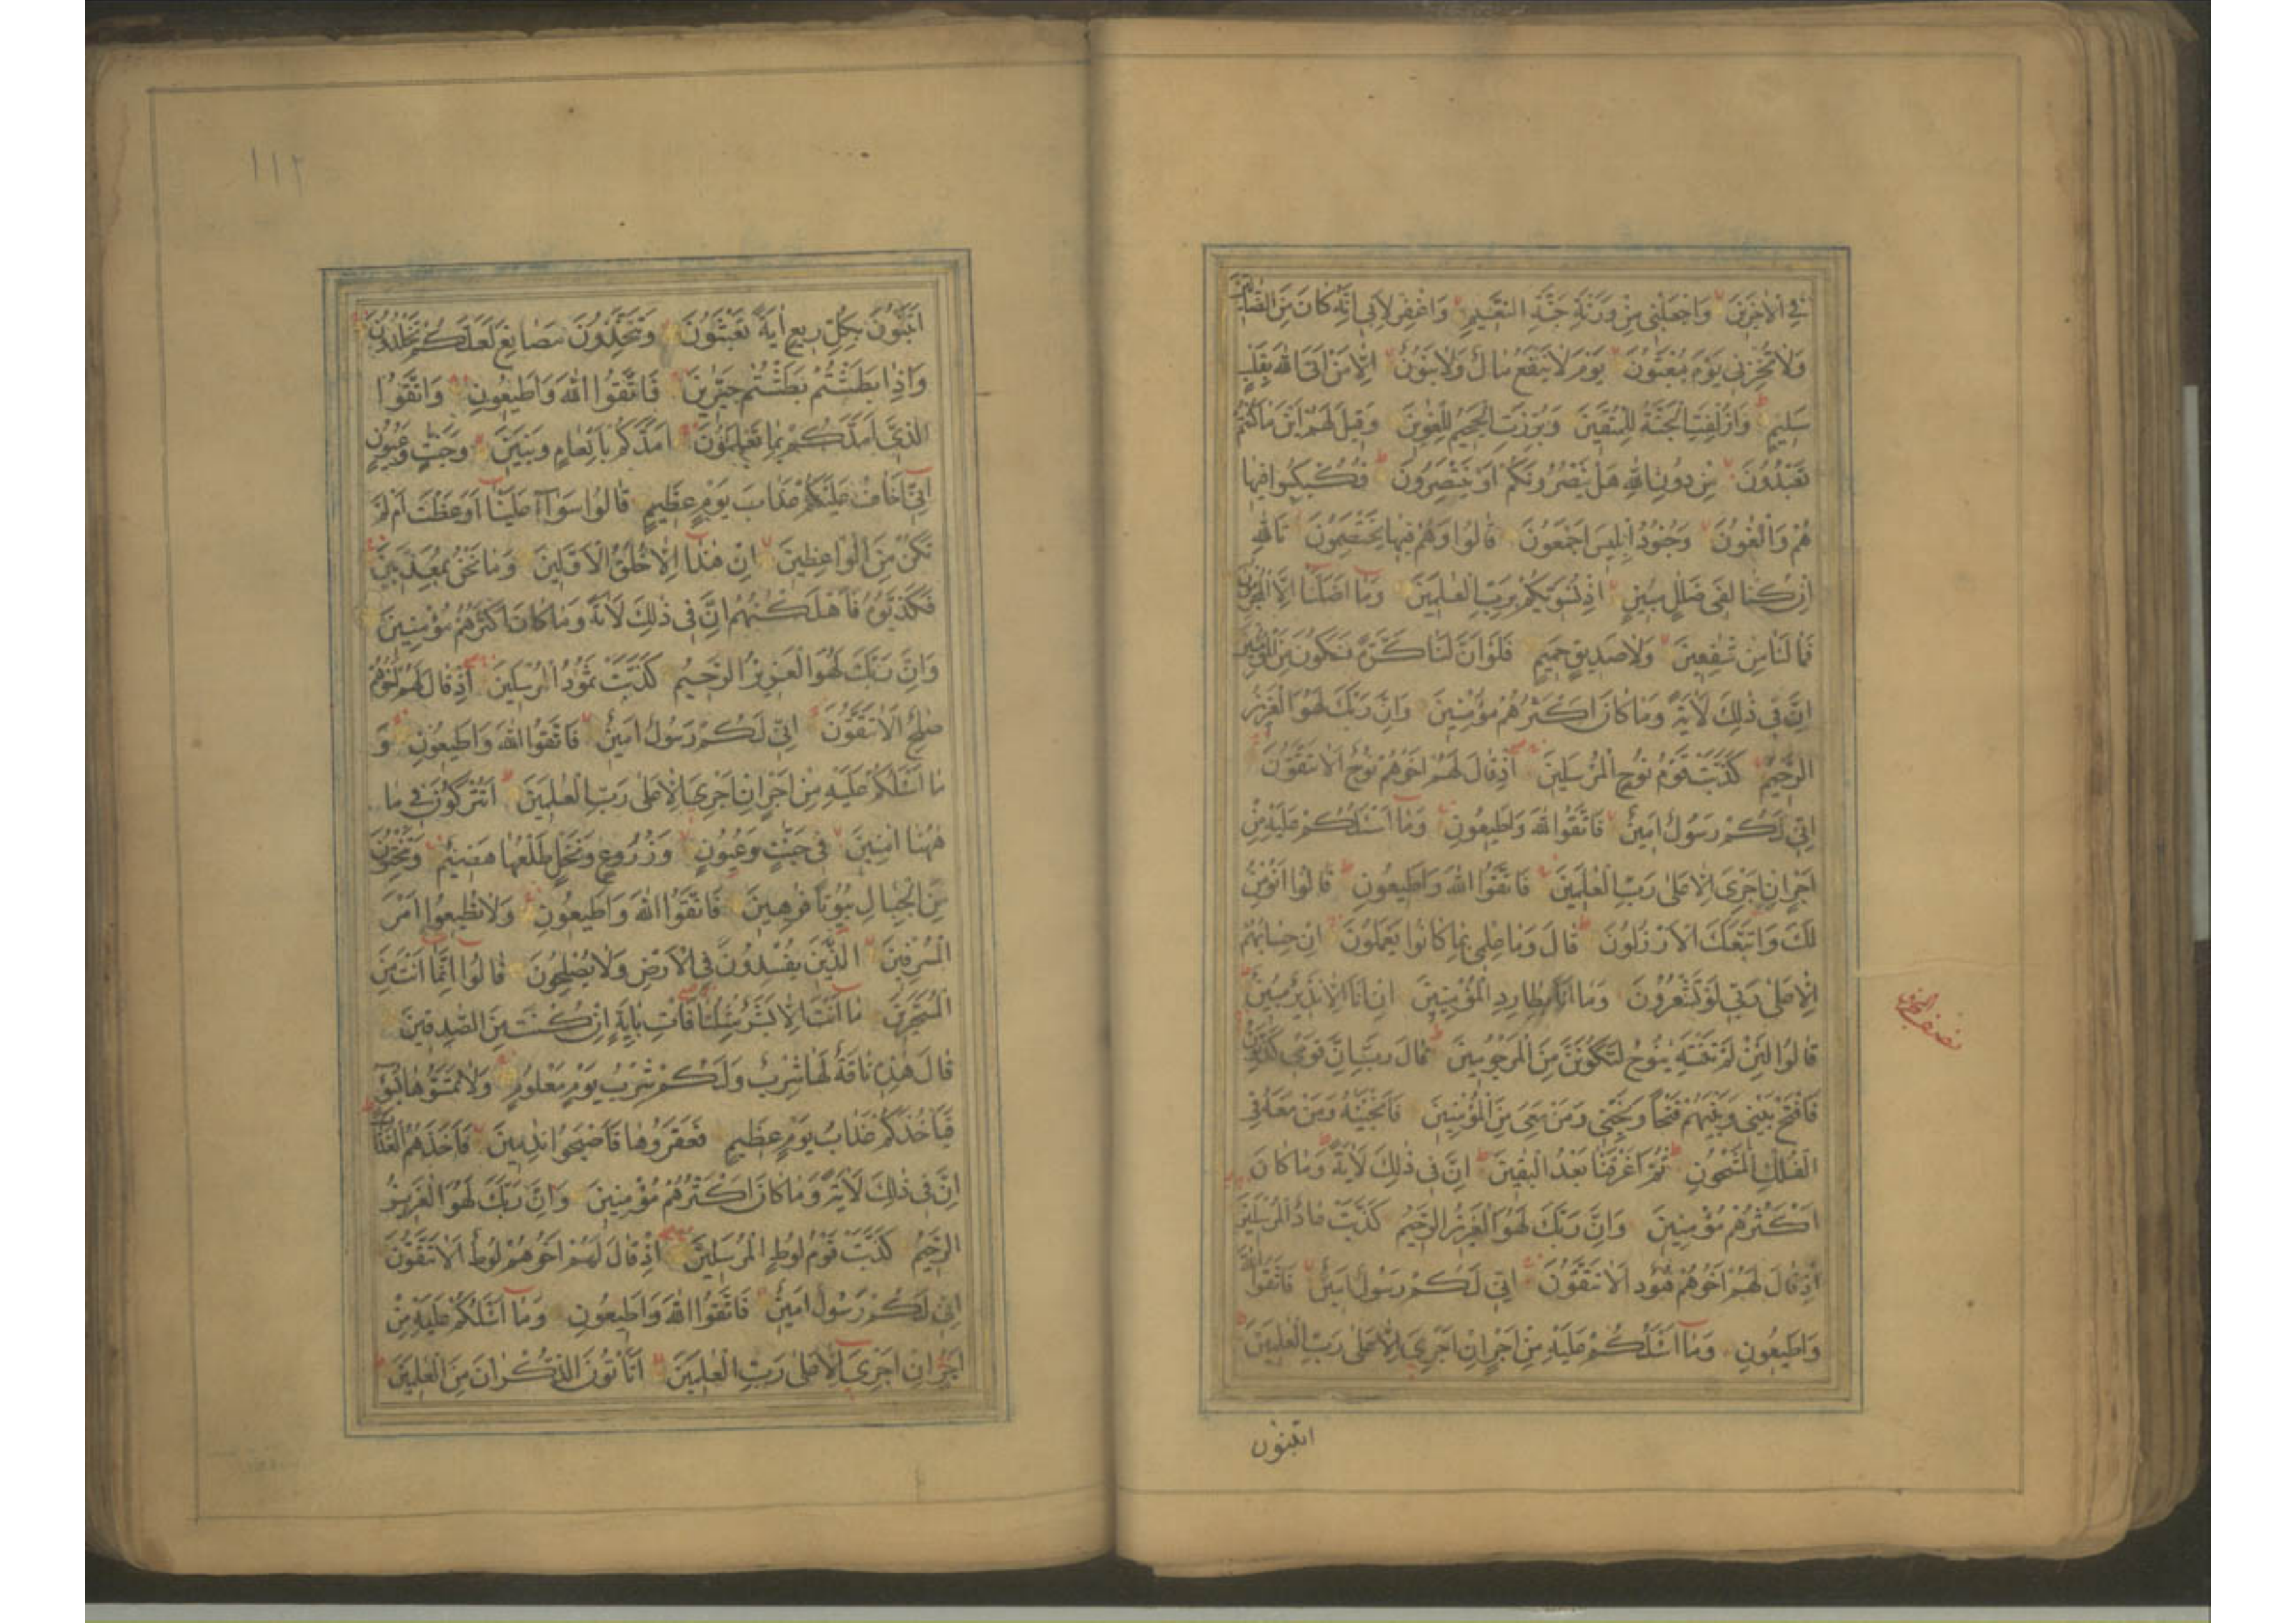 فِي الْاٰخِرِيْنَ وَاجْعَلْنِي مِنْ وَرَثَةِ جَنَّةِ النَّعِيْمِ وَاغْفِرْ لِاَبِي اِنَّهُ كَانَ مِنَ الضَّالِّيْنَ
وَلَا تُخْزِنِي يَوْمَ يُبْعَثُوْنَ يَوْمَ لَا يَنْفَعُ مَالٌ وَلَا بَنُوْنَ اِلَّا مَنْ اَتَى اللهَ بِقَلْبٍ
سَلِيْمٍ وَاُزْلِفَتِ الْجَنَّةُ لِلْمُتَّقِيْنَ وَبُرِّزَتِ الْجَحِيْمُ لِلْغٰوِيْنَ وَقِيْلَ لَهُمْ اَيْنَ مَا كُنْتُمْ
تَعْبُدُوْنَ مِنْ دُوْنِ اللهِ هَلْ يَنْصُرُوْنَكُمْ اَوْ يَنْتَصِرُوْنَ فَكُبْكِبُوْا فِيْهَا
هُمْ وَالْغٰوٗنَ وَجُنُوْدُ اِبْلِيْسَ اَجْمَعُوْنَ قَالُوْا وَهُمْ فِيْهَا يَخْتَصِمُوْنَ تَاللهِ
اِنْ كُنَّا لَفِي ضَلٰلٍ مُبِيْنٍ اِذْ نُسَوِّيْكُمْ بِرَبِّ الْعٰلَمِيْنَ وَمَا اَضَلَّنَا اِلَّا الْمُجْرِمُوْنَ
فَمَا لَنَا مِنْ شٰفِعِيْنَ وَلَا صَدِيْقٍ حَمِيْمٍ فَلَوْ اَنَّ لَنَا كَرَّةً فَنَكُوْنَ مِنَ الْمُؤْمِنِيْنَ
اِنَّ فِي ذٰلِكَ لَاٰيَةً وَمَا كَانَ اَكْثَرُهُمْ مُؤْمِنِيْنَ وَاِنَّ رَبَّكَ لَهُوَ الْعَزِيْزُ
الرَّحِيْمُ كَذَّبَتْ قَوْمُ نُوْحٍ الْمُرْسَلِيْنَ اِذْ قَالَ لَهُمْ اَخُوْهُمْ نُوْحٌ اَلَا تَتَّقُوْنَ
اِنِّي لَكُمْ رَسُوْلٌ اَمِيْنٌ فَاتَّقُوا اللهَ وَاَطِيْعُوْنِ وَمَا اَسْئَلُكُمْ عَلَيْهِ مِنْ
اَجْرٍ اِنْ اَجْرِيَ اِلَّا عَلٰى رَبِّ الْعٰلَمِيْنَ فَاتَّقُوا اللهَ وَاَطِيْعُوْنِ قَالُوْا اَنُؤْمِنُ
لَكَ وَاتَّبَعَكَ الْاَرْذَلُوْنَ قَالَ وَمَا عِلْمِي بِمَا كَانُوْا يَعْمَلُوْنَ اِنْ حِسَابُهُمْ
اِلَّا عَلٰى رَبِّي لَوْ تَشْعُرُوْنَ وَمَا اَنَا بِطَارِدِ الْمُؤْمِنِيْنَ اِنْ اَنَا اِلَّا نَذِيْرٌ مُبِيْنٌ
قَالُوْا لَئِنْ لَمْ تَنْتَهِ يٰنُوْحُ لَتَكُوْنَنَّ مِنَ الْمَرْجُوْمِيْنَ قَالَ رَبِّ اِنَّ قَوْمِي كَذَّبُوْنِ
فَافْتَحْ بَيْنِي وَبَيْنَهُمْ فَتْحًا وَنَجِّنِي وَمَنْ مَعِيَ مِنَ الْمُؤْمِنِيْنَ فَاَنْجَيْنٰهُ وَمَنْ مَعَهُ فِي
الْفُلْكِ الْمَشْحُوْنِ ثُمَّ اَغْرَقْنَا بَعْدُ الْبٰقِيْنَ اِنَّ فِي ذٰلِكَ لَاٰيَةً وَمَا كَانَ
اَكْثَرُهُمْ مُؤْمِنِيْنَ وَاِنَّ رَبَّكَ لَهُوَ الْعَزِيْزُ الرَّحِيْمُ كَذَّبَتْ عَادٌ الْمُرْسَلِيْنَ
اِذْ قَالَ لَهُمْ اَخُوْهُمْ هُوْدٌ اَلَا تَتَّقُوْنَ اِنِّي لَكُمْ رَسُوْلٌ اَمِيْنٌ فَاتَّقُوا اللهَ
وَاَطِيْعُوْنِ وَمَا اَسْئَلُكُمْ عَلَيْهِ مِنْ اَجْرٍ اِنْ اَجْرِيَ اِلَّا عَلٰى رَبِّ الْعٰلَمِيْنَ
اتبنون
١١٢
اَتَبْنُوْنَ بِكُلِّ رِيْعٍ اٰيَةً تَعْبَثُوْنَ وَتَتَّخِذُوْنَ مَصَانِعَ لَعَلَّكُمْ تَخْلُدُوْنَ
وَاِذَا بَطَشْتُمْ بَطَشْتُمْ جَبَّارِيْنَ فَاتَّقُوا اللهَ وَاَطِيْعُوْنِ وَاتَّقُوا
الَّذِي اَمَدَّكُمْ بِمَا تَعْلَمُوْنَ اَمَدَّكُمْ بِاَنْعَامٍ وَبَنِيْنَ وَجَنّٰتٍ وَعُيُوْنٍ
اِنِّي اَخَافُ عَلَيْكُمْ عَذَابَ يَوْمٍ عَظِيْمٍ قَالُوْا سَوَاءٌ عَلَيْنَا اَوَعَظْتَ اَمْ لَمْ
تَكُنْ مِنَ الْوَاعِظِيْنَ اِنْ هٰذَا اِلَّا خُلُقُ الْاَوَّلِيْنَ وَمَا نَحْنُ بِمُعَذَّبِيْنَ
فَكَذَّبُوْهُ فَاَهْلَكْنٰهُمْ اِنَّ فِي ذٰلِكَ لَاٰيَةً وَمَا كَانَ اَكْثَرُهُمْ مُؤْمِنِيْنَ
وَاِنَّ رَبَّكَ لَهُوَ الْعَزِيْزُ الرَّحِيْمُ كَذَّبَتْ ثَمُوْدُ الْمُرْسَلِيْنَ اِذْ قَالَ لَهُمْ اَخُوْهُمْ
صٰلِحٌ اَلَا تَتَّقُوْنَ اِنِّي لَكُمْ رَسُوْلٌ اَمِيْنٌ فَاتَّقُوا اللهَ وَاَطِيْعُوْنِ وَ
مَا اَسْئَلُكُمْ عَلَيْهِ مِنْ اَجْرٍ اِنْ اَجْرِيَ اِلَّا عَلٰى رَبِّ الْعٰلَمِيْنَ اَتُتْرَكُوْنَ فِي مَا
هٰهُنَا اٰمِنِيْنَ فِي جَنّٰتٍ وَعُيُوْنٍ وَزُرُوْعٍ وَنَخْلٍ طَلْعُهَا هَضِيْمٌ وَتَنْحِتُوْنَ
مِنَ الْجِبَالِ بُيُوْتًا فٰرِهِيْنَ فَاتَّقُوا اللهَ وَاَطِيْعُوْنِ وَلَا تُطِيْعُوْا اَمْرَ
الْمُسْرِفِيْنَ الَّذِيْنَ يُفْسِدُوْنَ فِي الْاَرْضِ وَلَا يُصْلِحُوْنَ قَالُوْا اِنَّمَا اَنْتَ مِنَ
الْمُسَحَّرِيْنَ مَا اَنْتَ اِلَّا بَشَرٌ مِثْلُنَا فَأْتِ بِاٰيَةٍ اِنْ كُنْتَ مِنَ الصّٰدِقِيْنَ
قَالَ هٰذِهِ نَاقَةٌ لَهَا شِرْبٌ وَلَكُمْ شِرْبُ يَوْمٍ مَعْلُوْمٍ وَلَا تَمَسُّوْهَا بِسُوْءٍ
فَيَأْخُذَكُمْ عَذَابُ يَوْمٍ عَظِيْمٍ فَعَقَرُوْهَا فَاَصْبَحُوْا نٰدِمِيْنَ فَاَخَذَهُمُ الْعَذَابُ
اِنَّ فِي ذٰلِكَ لَاٰيَةً وَمَا كَانَ اَكْثَرُهُمْ مُؤْمِنِيْنَ وَاِنَّ رَبَّكَ لَهُوَ الْعَزِيْزُ
الرَّحِيْمُ كَذَّبَتْ قَوْمُ لُوْطٍ الْمُرْسَلِيْنَ اِذْ قَالَ لَهُمْ اَخُوْهُمْ لُوْطٌ اَلَا تَتَّقُوْنَ
اِنِّي لَكُمْ رَسُوْلٌ اَمِيْنٌ فَاتَّقُوا اللهَ وَاَطِيْعُوْنِ وَمَا اَسْئَلُكُمْ عَلَيْهِ مِنْ
اَجْرٍ اِنْ اَجْرِيَ اِلَّا عَلٰى رَبِّ الْعٰلَمِيْنَ اَتَأْتُوْنَ الذُّكْرَانَ مِنَ الْعٰلَمِيْنَ